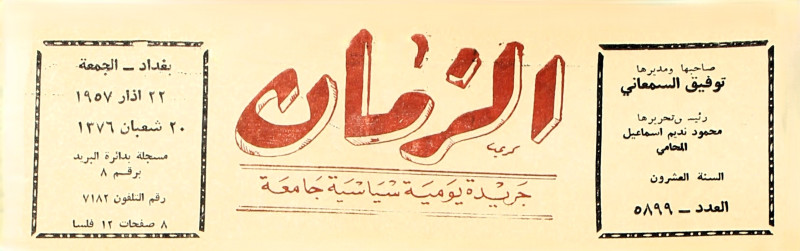 صاحبها ومديرها
توفيق السمعاني
رئيس تحريرها
محمود نديم اسماعيل
المحامي
السنة العشرون
العدد ــ ٥٨٩٩
الزمان
كريم
جريدة يومية سياسية جامعة
بغداد ــ الجمعة
٢٢ اذار ١٩٥٧
٢٠ شعبان ١٣٧٦
مسجلة بدائرة البريد
برقم ٨
رقم التلفون ٧١٨٢
٨ صفحات ١٢ فلسا